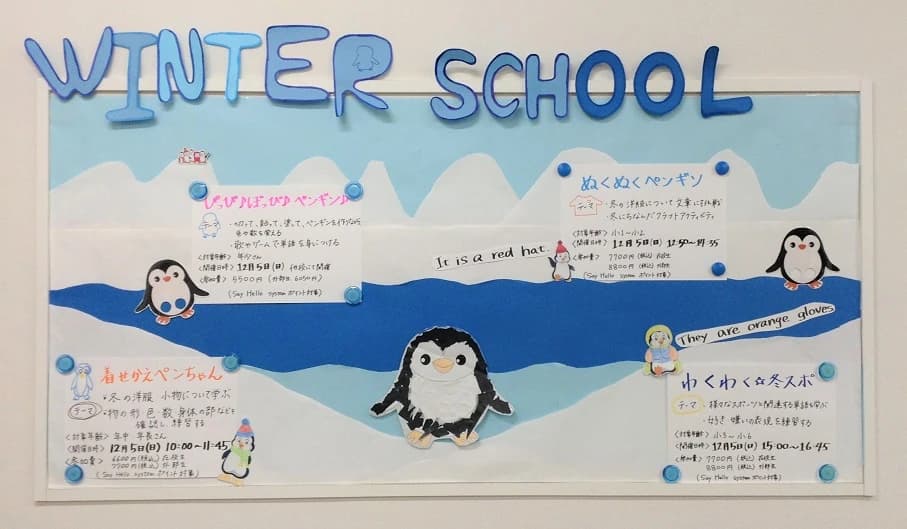 WINTER SCHOOL
ぴっぴ♪ぽっぴ♪ペンギン♪
テーマ
・切って、貼って、塗って、ペンギンを作りながら
色や数を覚える
・歌やゲームで単語を身につける
<対象年齢> 年少さん
<開催日時> 12月5日(日) 他校にて開催
<参加費> 5500円
(Say Hello system ポイント対象)
ぬくぬくペンギン
テーマ
・冬の洋服について文章に挑戦
・冬にちなんだクラフトアクティビティ
<対象年齢> 小1〜小2
<開催日時> 12月5日(日)
<参加費> 7700円(税込) 在校生
8800円(税込) 外部生
(Say Hello system ポイント対象)
It is a red hat.
They are orange gloves
着せかえペンちゃん
テーマ
・冬の洋服 小物について学ぶ
・物の形 色・数 身体の部などを
確認し 練習する
<対象年齢> 年中 年長さん
<開催日時> 12月5日(日) 10:00〜11:45
<参加費> 6600円(税込) 在校生
7700円(税込) 外部生
(Say Hello system ポイント対象)
わくわく☆冬スポ
テーマ
・様々なスポーツと関連する単語を学ぶ
・好き 嫌いの表現を練習する
<対象年齢> 小3〜小6
<開催日時> 12月5日(日) 15:00〜16:45
<参加費> 7700円(税込) 在校生
8800円(税込) 外部生
(Say Hello system ポイント対象)